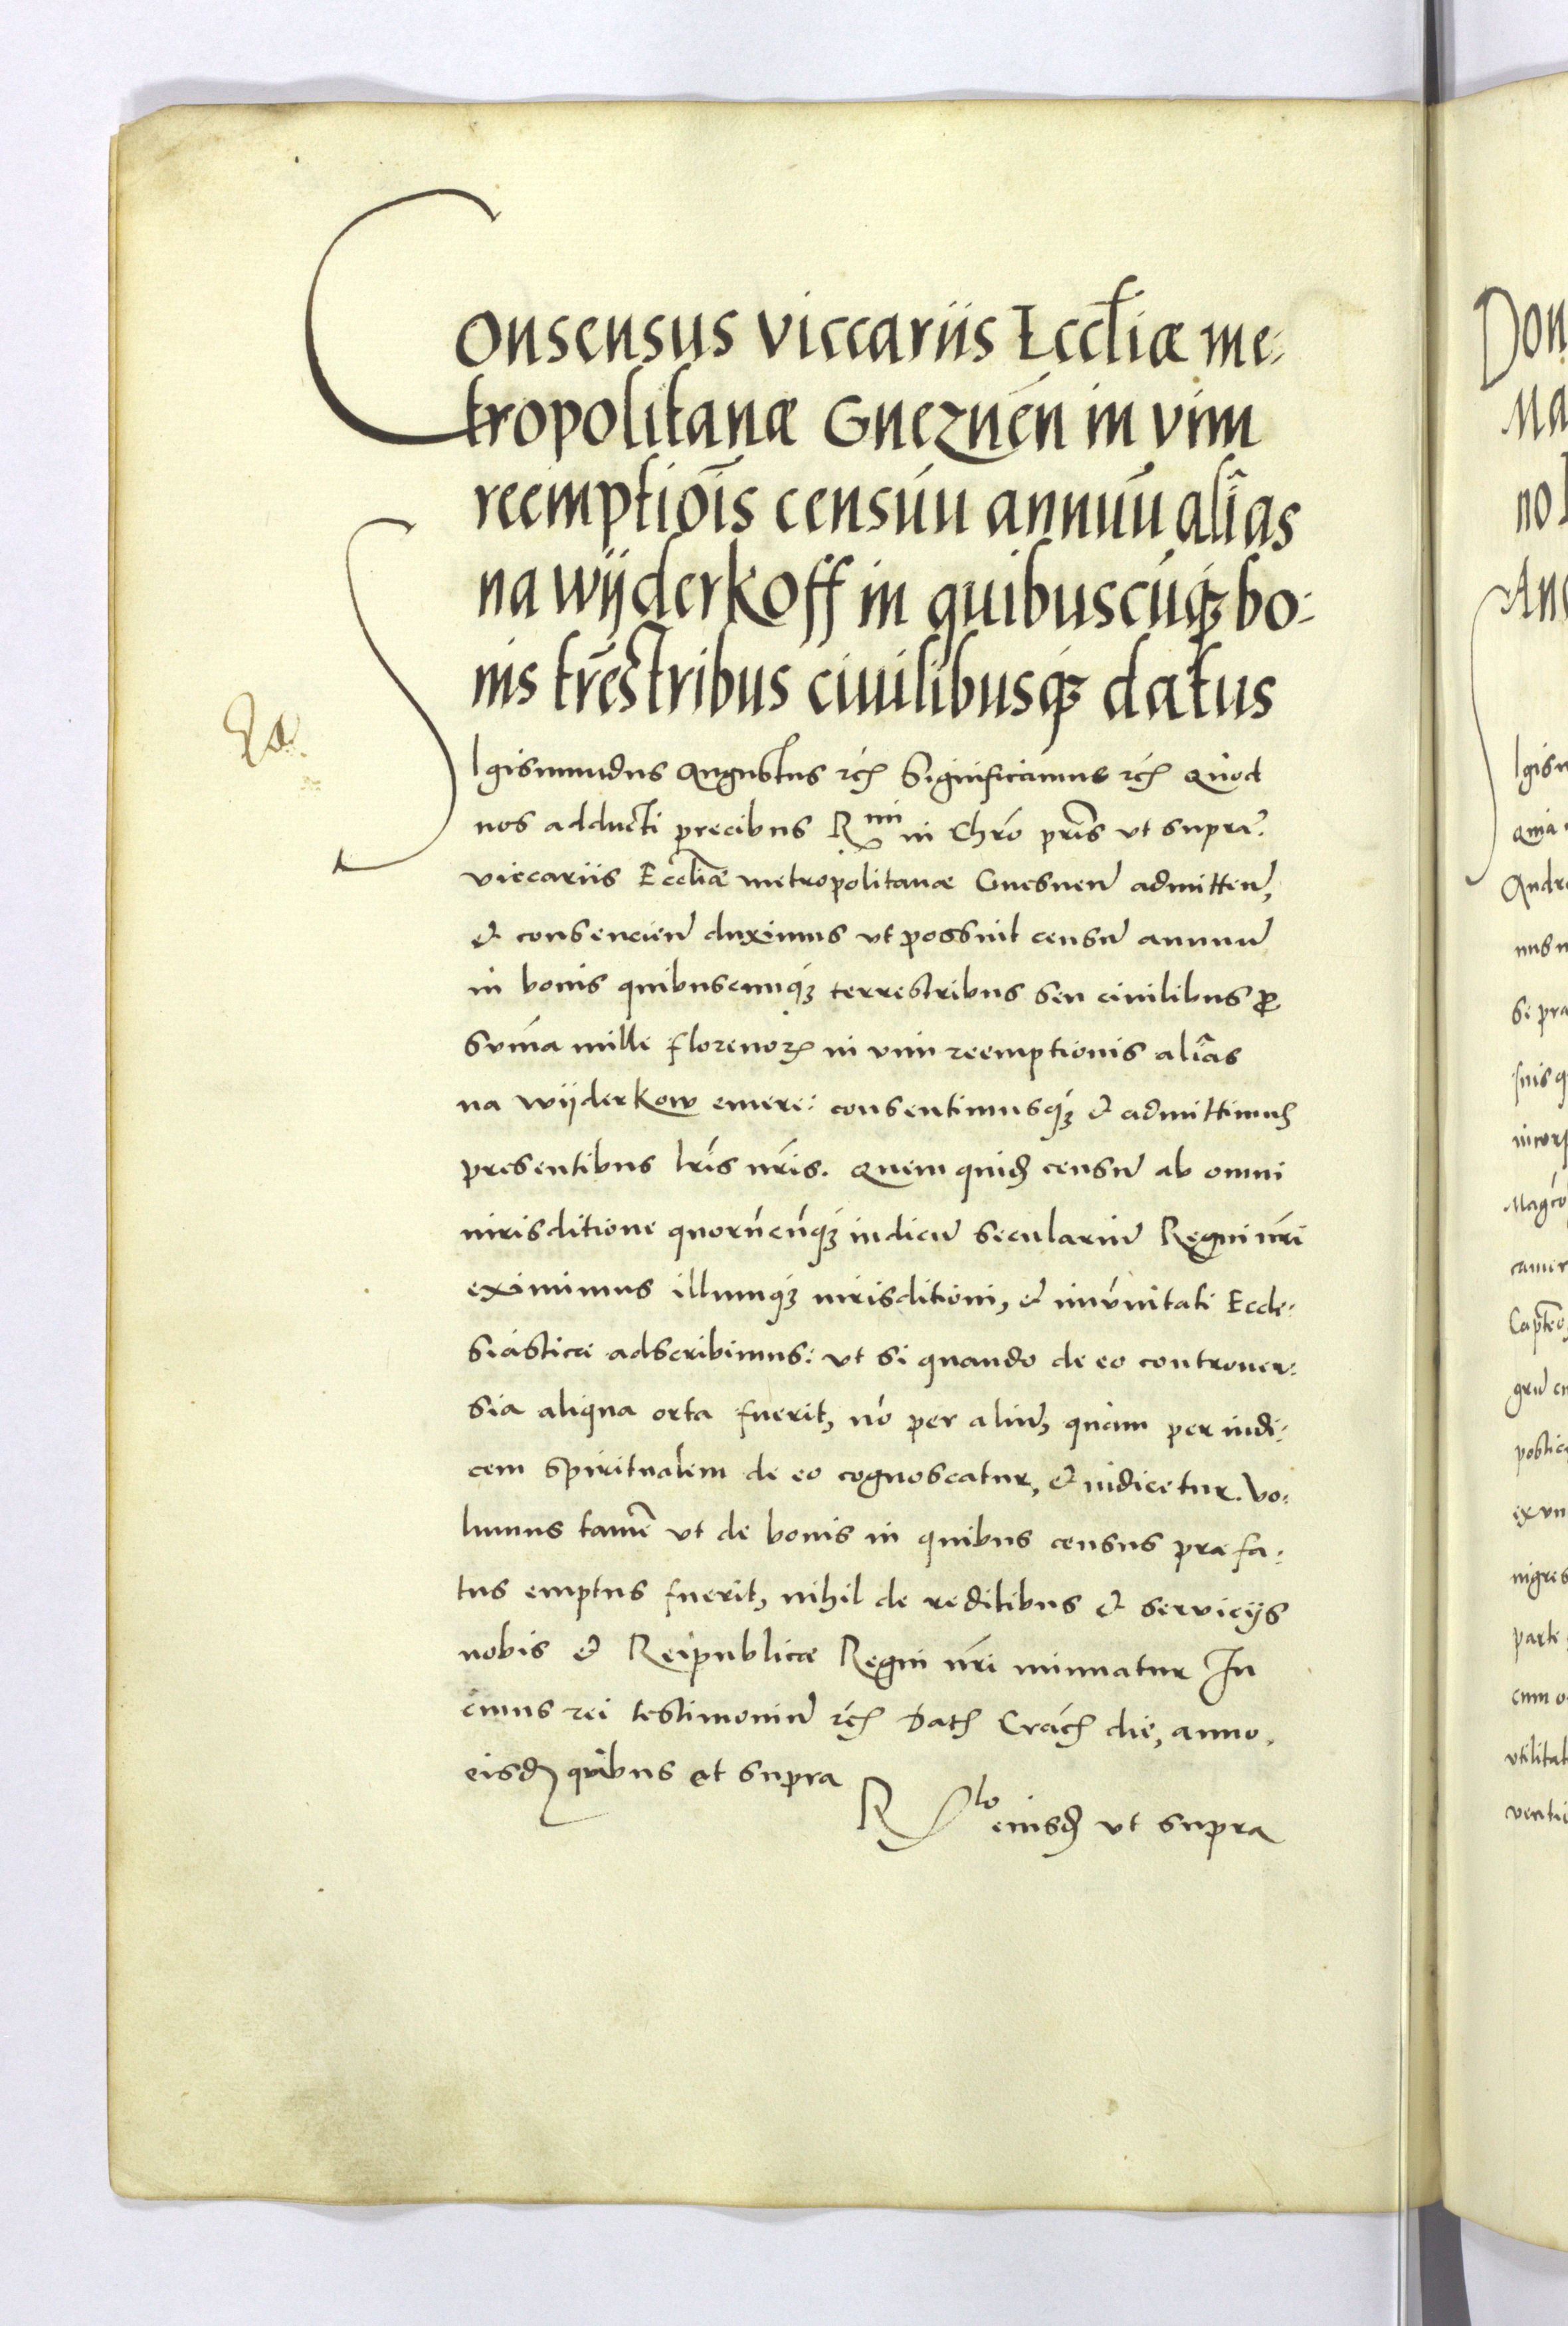 Consensus viccariis Eccl̃iæ me:
tropolitanæ Gneznen̄ in vim
reemptiōis censūu annuū al̃ias
na wÿderkoff in quibuscūq₃ bo:
nis tr̄estribus ciuilibusq₃ datus
Sigismundus Augustus rc̄ Significamus rc̄ Quod
nos adducti precibus R^mi in Chr̄o pr̄is vt supra.
viccariis Eccl̃iæ metropolitanæ Gnesnen̄ admitten̄,
& consencien̄ duximus vt possint censū annuū
in bonis quibuscunq₃ terrestribus seu ciuilibus ꝓ
sum̄a mille florenoꝝ in vim reemptionis al̃ias
na wÿderkow emere: consentimusq₃ & admittimus
presentibus lr̄is nr̄is. Quem quid̄ censū ab omni
iurisditione quorūcūq₃ iudicū seculariū Regni nr̄i
eximimus illumq₃ iurisditioni, & im̄unitati Eccle:
siasticæ adscribimus: vt si quando de eo controuer:
sia aliqua orta fuerit, nō per aliū, quàm per iudi:
cem spiritualem de eo cognoscatur, & iudicetur. Vo:
lumus tamē vt de bonis in quibus census præfa:
tus emptus fuerit, nihil de reditibus & serviciis
nobis & Reipublicæ Regni nr̄i minuatur In
cuius rei testimoniū rc̄ Dat̄ Crac̄ die, anno.
eisd̄ quibus et supra
R^lo eiusd̄ vt supra
Don
Ma
no
And
Sigis
quia
Andre
si pra
suis q
incorp
Magco
camer
Capteo
postic
ingres
parte
cum o
vtilitat